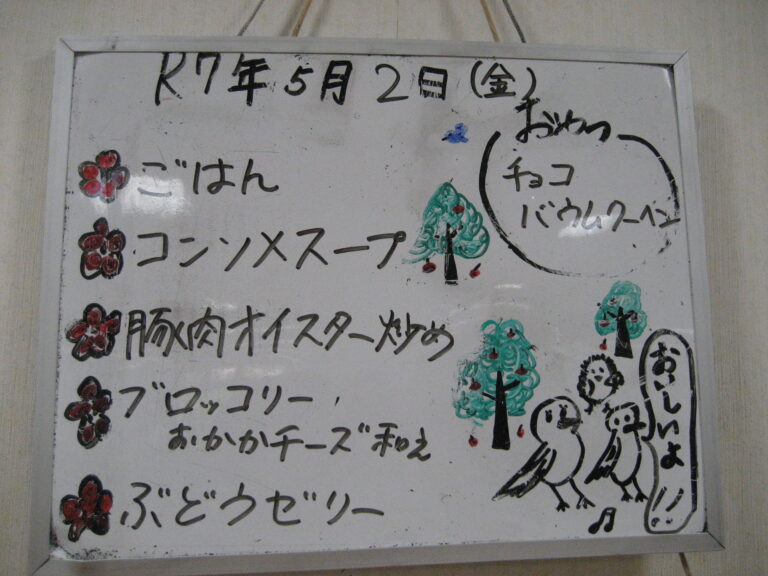 R7年5月2日(金)
おやつ
チョコ
バウムクーヘン
ごはん
コンソメスープ
豚肉オイスター炒め
ブロッコリー
おかかチーズ和え
ぶどうゼリー
おいしいよ!!